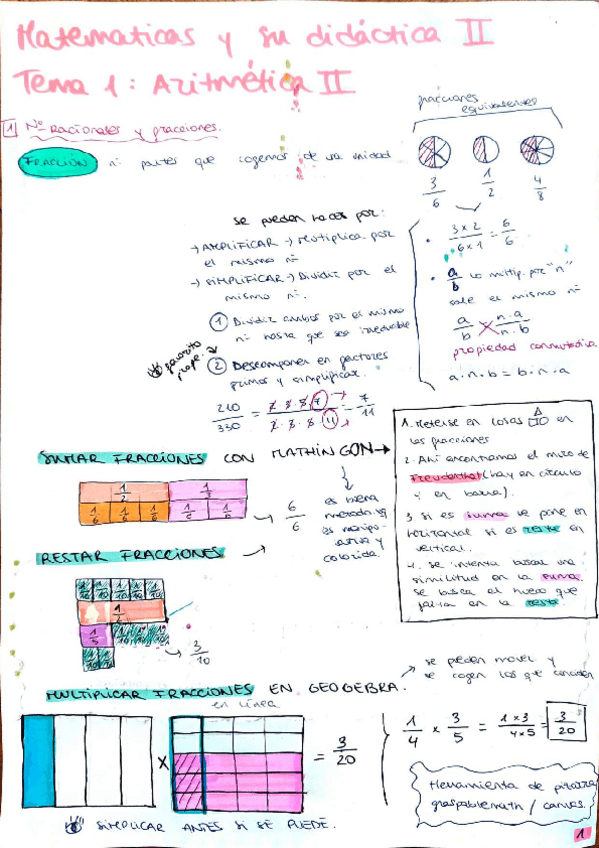 Matematicas y su didáctica II
Tema 1: Aritmética II
1 Nº Racionales y fracciones.
fracciones equivalentes
FRACCIÓN nº partes que cogemos de una unidad
3/6 1/2 4/8
se pueden hacer por:
→ AMPLIFICAR → Multiplica por
el mismo nº
→ SIMPLIFICAR → Dividir por el
mismo nº.
① Dividir ambos por el mismo
nº hasta que sea irreducible
② Descomponer en factores
primos y simplificar.
favorito
profe.
210/330 = 2·3·5·7/2·3·5·11 = 7/11
• 3x2/6x1 = 6/6
• a/b lo multip. por "n"
sale el mismo nº
a/b n·a/n·b
propiedad conmutativa
a·n·b = b·n·a
SUMAR FRACCIONES CON MATHINGON →
1/2 1/3
1/6 1/6 1/6 1/6 1/6
→ 6/6
es buena
metodo ya
es manipu-
lativa y
colorida.
1. Meterse en cosas en
las fracciones
2. Ahí encontramos el muro de
Freudenthal (hay en círculo
y en barra).
3. si es suma se pone en
horizontal si es resta en
vertical.
4. se intenta buscar una
similitud en la suma,
se busca el hueco que
falta en la resta
RESTAR FRACCIONES →
1/10 1/10 1/10 1/10 1/10
1/2
1/5
1/10 1/10
→ 3/10
MULTIPLICAR FRACCIONES EN GEOGEBRA.
en línea
→ se pueden mover y
se cogen los que coinciden
x = 3/20
1/4 x 3/5 = 1x3/4x5 = 3/20
Herramienta de pizarra
graspablemath / canvas.
SIMPLICAR ANTES SI SE PUEDE.
1